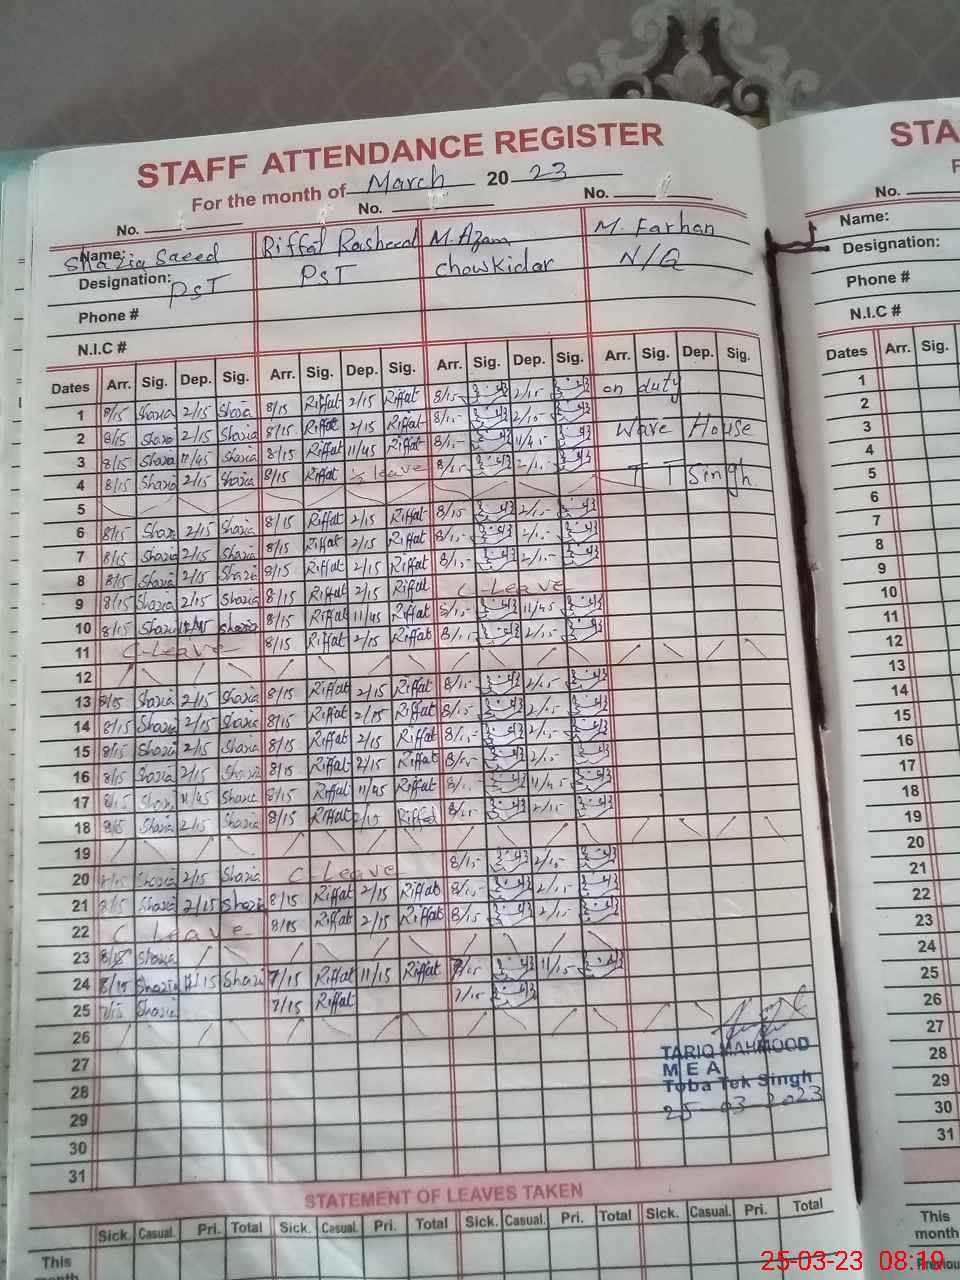 STAFF ATTENDANCE REGISTER
For the month of March 20 23
No. No. No.
Name: Shazia Saeed Riffat Rasheed M. Azam M. Farhan
Designation: PST PST chowkidar N/Q
Phone #
N.I.C #
Dates Arr. Sig. Dep. Sig. Arr. Sig. Dep. Sig. Arr. Sig. Dep. Sig. Arr. Sig. Dep. Sig.
1 8/15 Shazia 2/15 Shazia 8/15 Riffat 2/15 Riffat 8/15 2/15 on duty
2 8/15 Shazia 2/15 Shazia 8/15 Riffat 2/15 Riffat 8/15 2/15
3 8/15 Shazia 11/45 Shazia 8/15 Riffat 11/45 Riffat 8/15 11/45 Ware House
4 8/15 Shazia 2/15 Shazia 8/15 Riffat ½ leave 8/15 2/15
5 T T Singh.
6 8/15 Shazia 2/15 Shazia 8/15 Riffat 2/15 Riffat 8/15 2/15
7 8/15 Shazia 2/15 Shazia 8/15 Riffat 2/15 Riffat 8/15 2/15
8 8/15 Shazia 2/15 Shazia 8/15 Riffat 2/15 Riffat 8/15 2/15
9 8/15 Shazia 2/15 Shazia 8/15 Riffat 2/15 Riffat C-Leave
10 8/15 Shazia 11/45 Shazia 8/15 Riffat 11/45 Riffat 8/15 11/45
11 C-Leave 8/15 Riffat 2/15 Riffat 8/15 2/15
12
13 8/15 Shazia 2/15 Shazia 8/15 Riffat 2/15 Riffat 8/15 2/15
14 8/15 Shazia 2/15 Shazia 8/15 Riffat 2/15 Riffat 8/15 2/15
15 8/15 Shazia 2/15 Shazia 8/15 Riffat 2/15 Riffat 8/15 2/15
16 8/15 Shazia 2/15 Shazia 8/15 Riffat 2/15 Riffat 8/15 2/15
17 8/15 Shazia 11/45 Shazia 8/15 Riffat 11/45 Riffat 8/15 11/45
18 8/15 Shazia 2/15 Shazia 8/15 Riffat 2/15 Riffat 8/15 2/15
19
20 Shazia 2/15 Shazia C-Leave 8/15 2/15
21 8/15 Shazia 2/15 Shazia 8/15 Riffat 2/15 Riffat 8/15 2/15
22 C Leave 8/15 Riffat 2/15 Riffat 8/15 2/15
23 8/15 Shazia
24 8/15 Shazia 11/15 Shazia 7/15 Riffat 11/15 Riffat 7/15 11/15
25 7/15 Shazia 7/15 Riffat 7/15
26
27
28
29
30
31
TARIQ MAHMOOD
M E A
Toba Tek Singh
25-03-2023
STATEMENT OF LEAVES TAKEN
Sick. Casual. Pri. Total Sick. Casual. Pri. Total Sick. Casual. Pri. Total Sick. Casual. Pri. Total
This month
STA
No.
Name:
Designation:
Phone #
N.I.C #
Dates Arr. Sig.
1
2
3
4
5
6
7
8
9
10
11
12
13
14
15
16
17
18
19
20
21
22
23
24
25
26
27
28
29
30
31
This
month
25-03-23 08:19